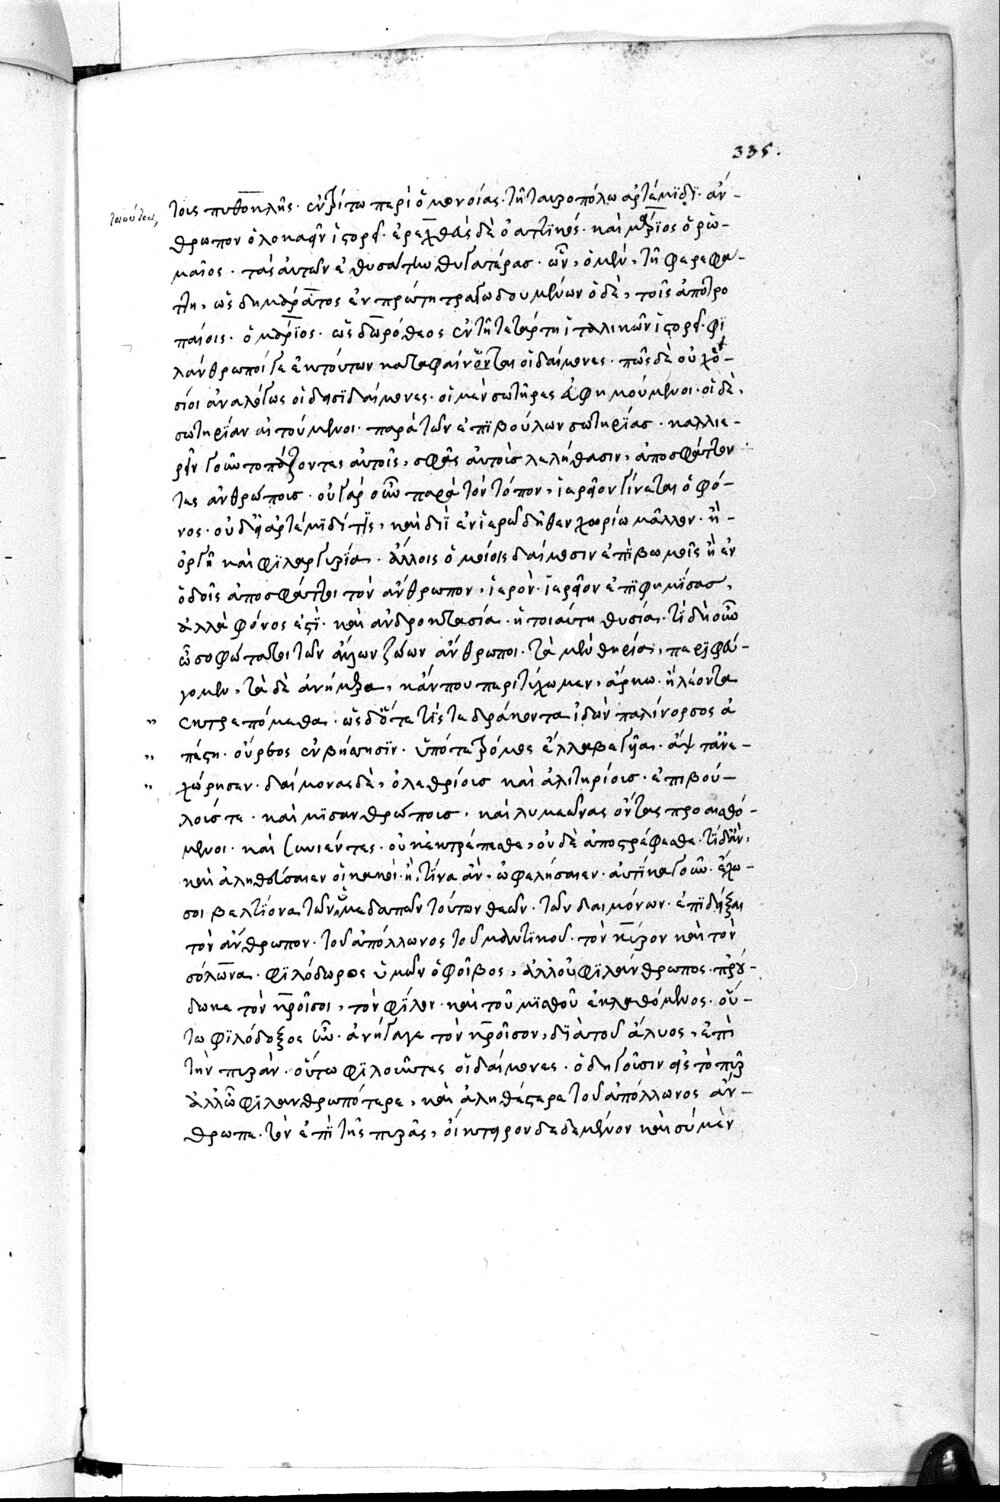 335.
τους πυθοκλῆς· ἐν τρίτω περὶ ὁμονοίας· τῆ ταυροπόλω ἀρτέμιδι· ἄν-
θρωπον ὁλοκαεῖν ἱστορεῖ· ἐρεχθεὺς δὲ ὁ ἀττικός· καὶ μάριος ὁ ῥω-
μαῖος· τὰς αὑτῶν ἐθυσάτην θυγατέρας· ὧν, ὁ μὲν, τῆ φερεφά-
τη, ὡς δημάρατος ἐν πρώτη τραγωδουμένων ὁ δὲ, τοῖς ἀποτρο
παίοις· ὁ μάριος· ὡς δωρόθεος ἐν τῆ τετάρτη ἰταλικῶν ἱστορεῖ· φι
λάνθρωποί γε ἐκ τούτων καταφαίνονται οἱ δαίμονες· πῶς δὲ οὐχ ὅ-
σιοι ἀναλόγως οἱ δεισιδαίμονες· οἱ μὲν σωτῆρες εὐφημούμενοι· οἱ δὲ,
σωτηρίαν αἰτούμενοι· παρὰ τῶν ἐπιβούλων σωτηρίας· καλλιε-
ρεῖν γοῦν τοπάζοντες αὐτοῖς, σφᾶς αὐτοὺς λελήθασιν, ἀποσφάττον
τες ἀνθρώπους· οὐ γὰρ οὖν παρὰ τὸν τόπον, ἱερεῖον γίνεται ὁ φό-
νος· οὐδ' εἰ ἀρτέμιδί τις, καὶ διῒ ἐν ἱερῶ δῆθεν χωρίω μᾶλλον· ἢ-
ὀργῆ καὶ φιλαργυρία· ἄλλοις ὁμοίοις δαίμοσιν ἐπὶ βωμοῖς ἢ ἐν
ὁδοῖς ἀποσφάττοι τὸν ἄνθρωπον, ἱερὸν· ἱερεῖον ἐπιφημίσας,
ἀλλὰ φόνος ἐστὶ· καὶ ἀνδροκτασία· ἡ τοιαύτη θυσία· τί δὴ οὖν
ὦ σοφώτατοι τῶν ἄλλων ζώων ἄνθρωποι· τὰ μὲν θηρία, περιφεύ-
γομεν, τὰ δὲ ἀνήμερα, κἄν που περιτύχωμεν, ἄρκω· ἢ λέοντι
ἐκτρεπόμεθα· ὡς δ' ὅτε τίς τε δράκοντα ἰδὼν παλίνορσος ἀ
πέστη· οὔρεος ἐν βήσσησιν· ὑπό τε τρόμος ἔλλαβε γυῖα· ἄψ τ' ἀνε-
χώρησεν· δαίμονας δὲ, ὀλεθρίους καὶ ἀλιτηρίους· ἐπιβού-
λους τε· καὶ μισανθρώπους, καὶ λυμεῶνας ὄντας προαισθό-
μενοι· καὶ συνιέντες· οὐκ ἐκτρέπεσθε, οὐδὲ ἀποστρέφεσθε· τί δ' ἂν,
καὶ ἀληθεύσαιεν οἱ κακοὶ· ἢ, τίνα ἂν, ὠφελήσαιεν· αὐτίκα γοῦν· ἔχω-
σοι βελτίονα τῶν ὑμεδαπῶν τούτων θεῶν· τῶν δαιμόνων· ἐπιδεῖξαι
τὸν ἄνθρωπον· τοῦ ἀπόλλωνος τοῦ μαντικοῦ· τὸν κῦρον καὶ τὸν
σόλωνα· φιλόδωρος ὑμῶν ὁ φοῖβος, ἀλλ' οὐ φιλάνθρωπος· πρού-
δωκε τὸν κροῖσον, τὸν φίλον· καὶ τοῦ μισθοῦ ἐκλαθόμενος· οὕ-
τω φιλόδοξος ἦν· ἀνήγαγε τὸν κροῖσον, διὰ τοῦ ἅλυος, ἐπὶ
τὴν πυράν· οὕτω φιλοῦντες οἱ δαίμονες· ὁδηγοῦσιν εἰς τὸ πῦρ
ἀλλ' ὦ φιλανθρωπότερε, καὶ ἀληθέστερε τοῦ ἀπόλλωνος ἄν-
θρωπε· τὸν ἐπὶ τῆς πυρᾶς, οἴκτειρον δεδεμένον καὶ σύ μὲν